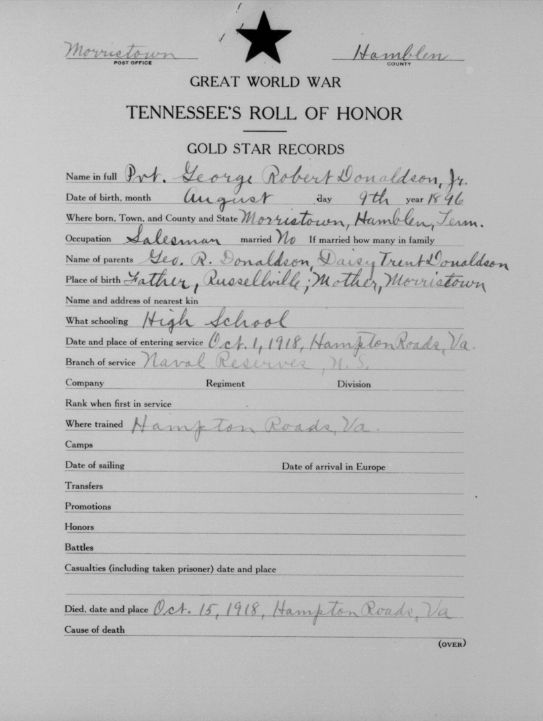 Morristown Hamblen
POST OFFICE COUNTY
GREAT WORLD WAR
TENNESSEE'S ROLL OF HONOR
GOLD STAR RECORDS
Name in full Pvt. George Robert Donaldson, Jr.
Date of birth, month August day 9th year 1896
Where born, Town, and County and State Morristown, Hamblen, Tenn.
Occupation Salesman married No If married how many in family
Name of parents Geo. R. Donaldson, Daisy Trent Donaldson
Place of birth Father, Russellville; Mother, Morristown
Name and address of nearest kin
What schooling High School
Date and place of entering service Oct. 1, 1918, Hampton Roads, Va.
Branch of service Naval Reserves, U.S.
Company Regiment Division
Rank when first in service
Where trained Hampton Roads, Va.
Camps
Date of sailing Date of arrival in Europe
Transfers
Promotions
Honors
Battles
Casualties (including taken prisoner) date and place
Died, date and place Oct. 15, 1918, Hampton Roads, Va
Cause of death
(OVER)